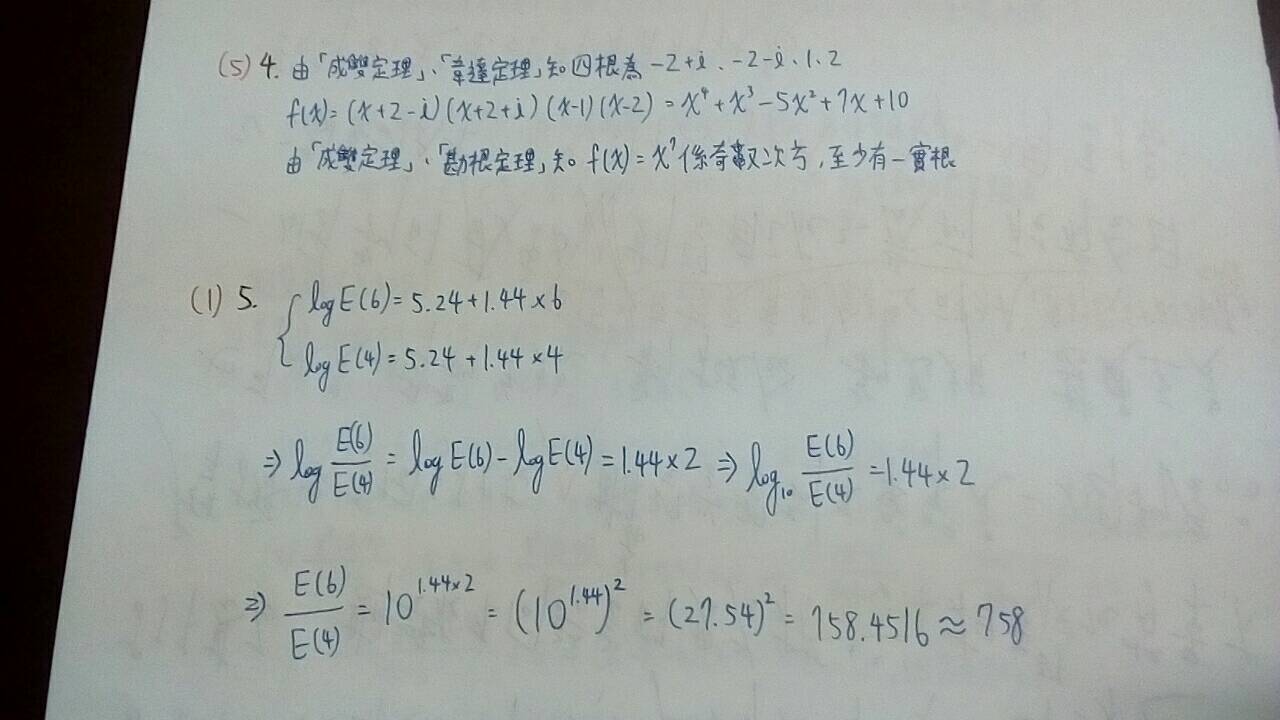 (5) 4. 由「成雙定理」、「韋達定理」知四根為 -2+i、-2-i、1、2
f(x)=(x+2-i)(x+2+i)(x-1)(x-2)=x⁴+x³-5x²+7x+10
由「成雙定理」、「勘根定理」知。f(x)=x⁷係奇數次方,至少有一實根
(1) 5. { log E(6)=5.24+1.44×6
log E(4)=5.24+1.44×4
⇒ log E(6)/E(4) = log E(6)-log E(4)=1.44×2 ⇒ log₁₀ E(6)/E(4) =1.44×2
⇒ E(6)/E(4) = 10^(1.44×2) = (10^1.44)² = (27.54)² = 758.4516 ≈ 758